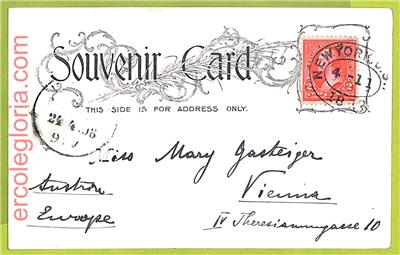 Souvenir Card
THIS SIDE IS FOR ADDRESS ONLY.
NEW YORK
24 4 98
Miss Mary Gasteiger
Austria
Vienna
Europe
IV Theresianumgasse 10
ercolegloria.com